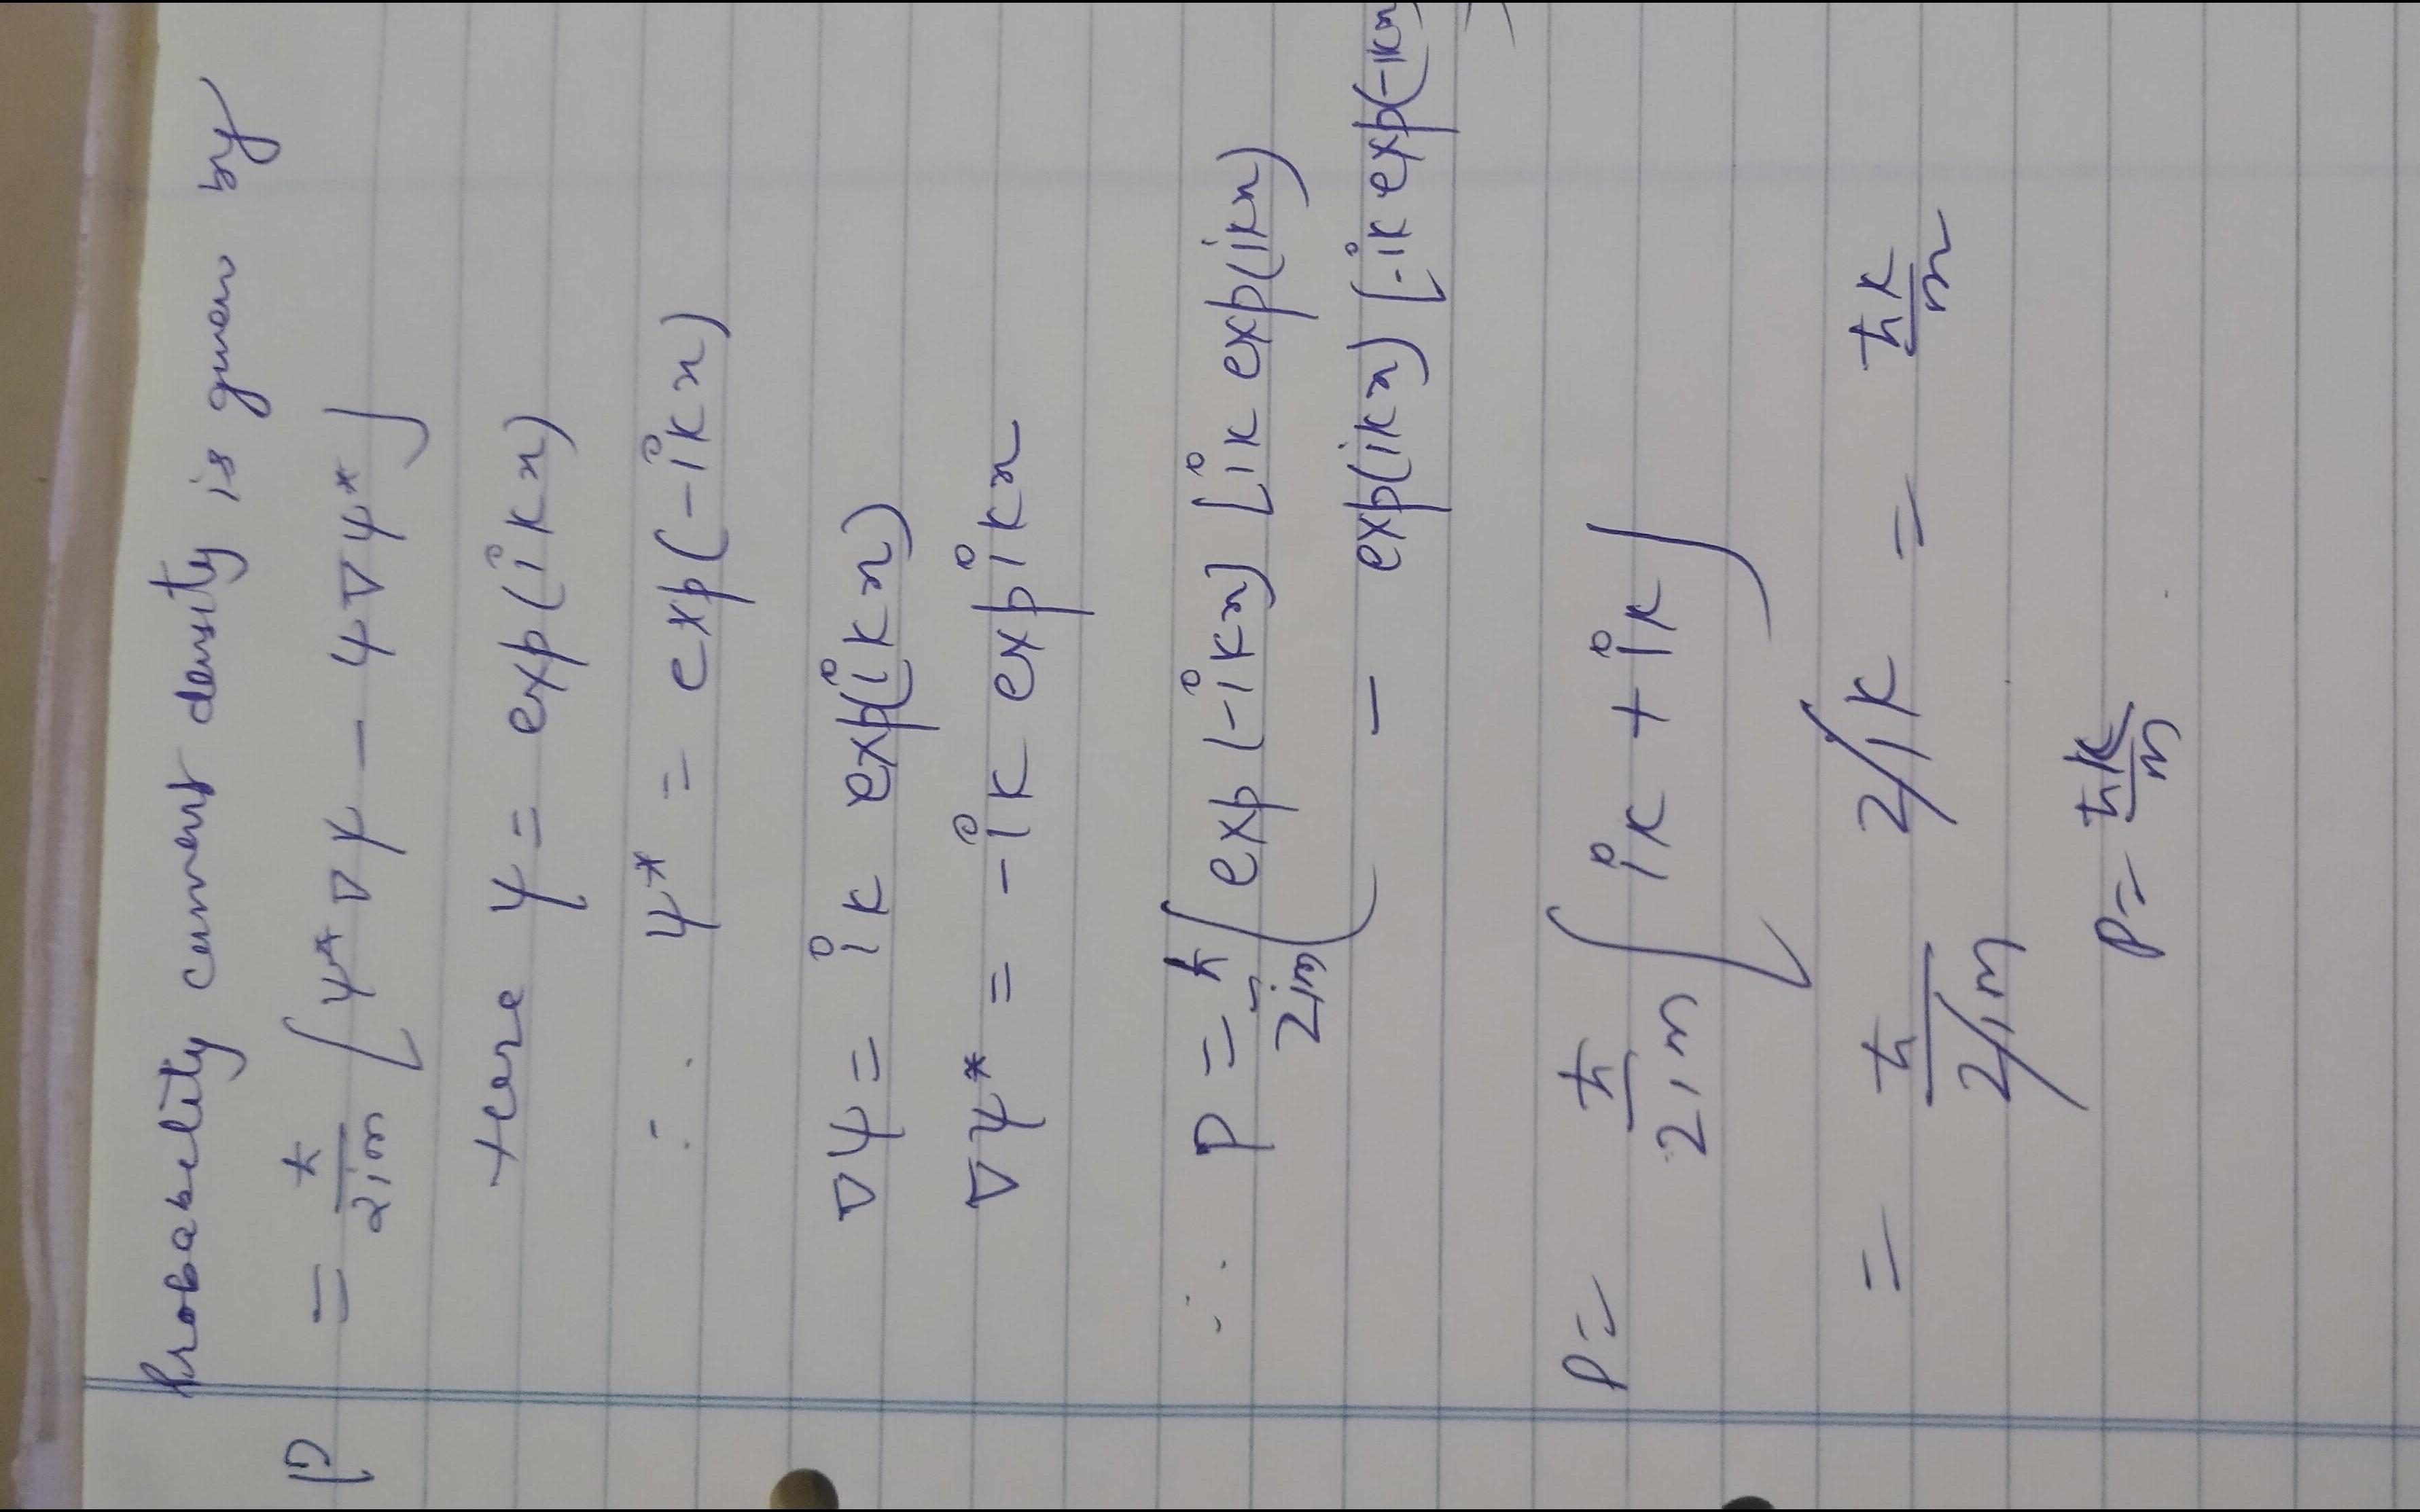 Probability current density is given by
P = ħ/2im [ψ* ∇ψ − ψ∇ψ*]
Here ψ = exp(ikx)
∴ ψ* = exp(−ikx)
∇ψ = ik exp(ikx)
∇ψ* = −ik exp ikx
∴ P = ħ/2im [exp(−ikx) [ik exp(ikx)
− exp(ikx) [-ik exp(-ikx)
P = ħ/2im [ik + ik]
= ħ/2im 2ik = ħk/m
P = ħk/m